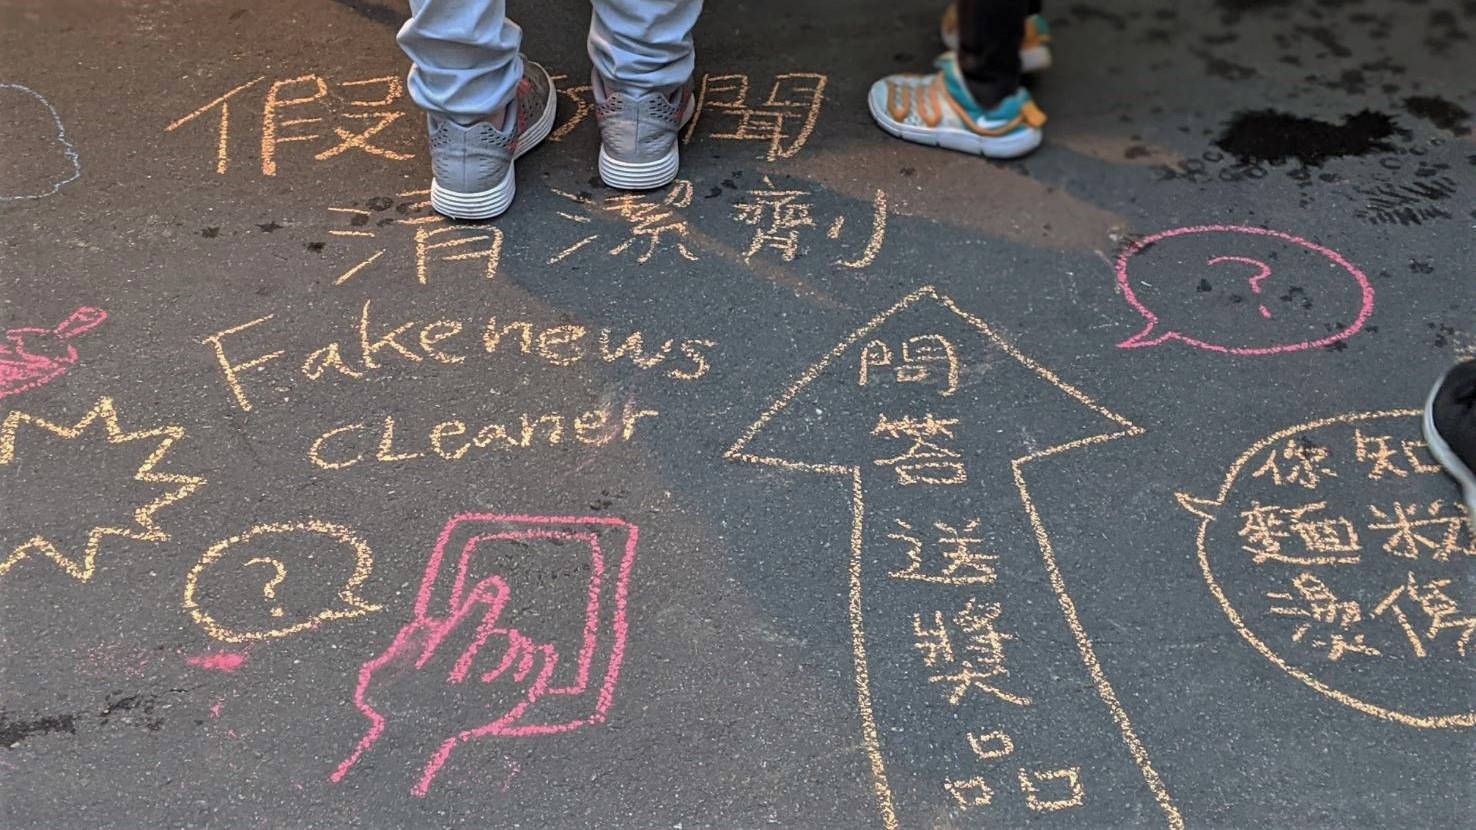 假 聞
清潔劑
Fakenews
cLeaner
問
答
送
獎
品
?
?
你知
麵
湯